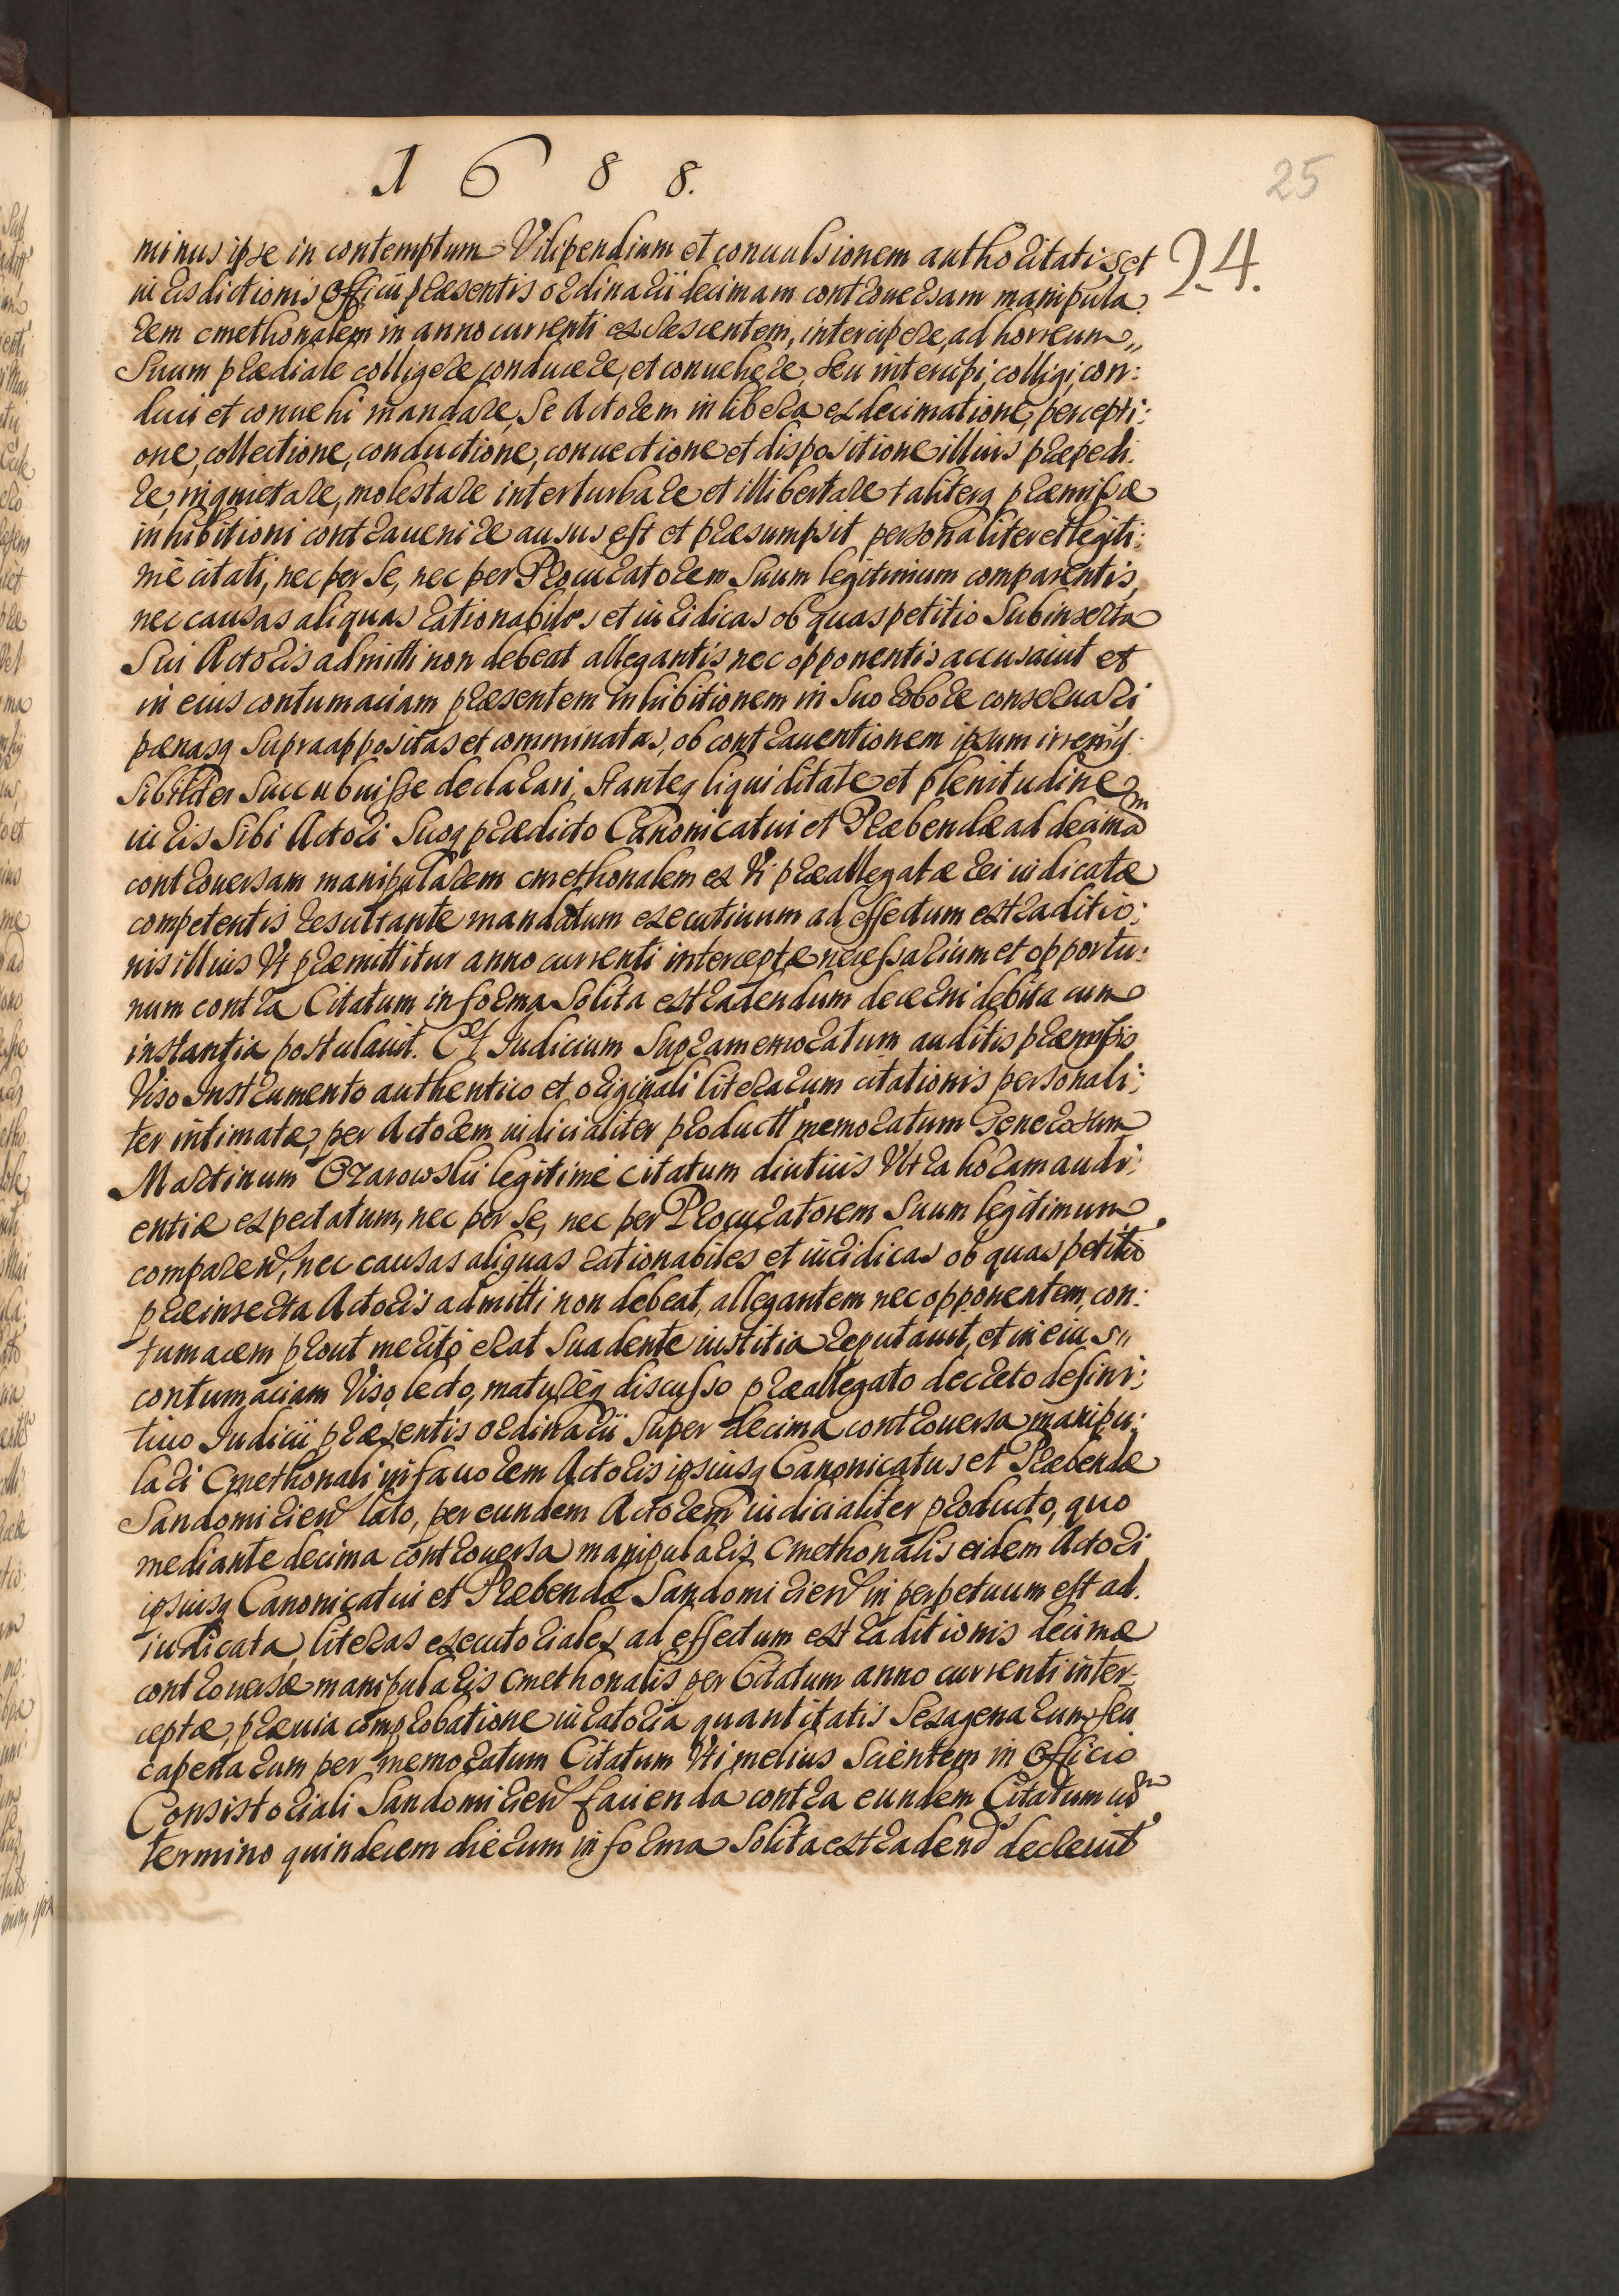 1688.
25
24.
minus ipse in contemptum Vilipendium et conuulsionem authoritatis et
iurisdictionis Officii præsentis ordinarii decimam controuersam manipula:
rem cmethonalem in anno currenti excrescentem, intercipere, ad horreum,,
Suum prædiale colligere, conducere, et conuehere, seu intercipi, colligi, con:
duci et conuehi mandare, Se Actorem in libera exdecimatione, percepti:
one, collectione, conductione, conuectione et dispositione illius præpedi:
re, inquietare, molestare interturbare et illibertare taliterq præmissæ
inhibitioni contrauenire ausus est et præsumpsit personaliter et legiti:
me citati, nec per Se, nec per Procuratorem Suum legitimum comparentis,
nec causas aliquas rationabiles et iuridicas ob quas petitio Subinserta
Sui Actoris admitti non debeat allegantis nec opponentis accusauit et
in eius contumaciam præsentem inhibitionem in Suo robore conseruari
pænasq Supraappositas et comminatas, ob contrauentionem ipsum irremis:
sibiliter Succubuisse declarari, Stanteq liquiditate et plenitudine
iuris Sibi Actori Suoq prædicto Canonicatui et Præbendæ ad decimam
controuersam manipularem cmethonalem ex Vi præallegatæ rei iudicatæ
competentis resultante mandatum executiuum ad effectum extraditio:
nis illius Vt præmittitur anno currenti interceptæ necessarium et opportu:
num contra Citatum in forma Solita extradendum decerni debita cum
instantia postulauit. Et Iudicium Supramemoratum auditis præmissis
Viso Instrumento authentico et originali literarum citationis personali:
ter intimatæ, per Actorem iudicialiter product' memoratum Generosum
Martinum Ozarowski legitime citatum diutius Vltra horam audi:
entiæ expectatum, nec per Se, nec per Procuratorem Suum legitimum
comparen, nec causas aliquas rationabiles et iuridicas ob quas petitio
præinserta Actoris admitti non debeat, allegantem nec opponentem, con:
tumacem prout merito erat Suadente iustitia reputauit, et in eius,,
contumaciam Viso, lecto, matureq discusso præallegato decreto defini:
tiuo Iudicii præsentis ordinarii Super decima controuersa manipu:
lari Cmethonali in fauorem Actoris ipsiusq Canonicatus et Præbendæ
Sandomirien lato, per eundem Actorem iudicialiter producto, quo
mediante decima controuersa manipularis Cmethonalis eidem Actori
ipsiusq Canonicatui et Præbendæ Sandomirien in perpetuum est ad:
iudicata, literas executoriales ad effectum extraditionis decimæ
controuersæ manipularis Cmethonalis per Citatum anno currenti inter-
ceptæ, præuia comprobatione iuratoria quantitatis Sexagenarum seu
capetiarum per memoratum Citatum Vti melius Scientem in Officio
Consistoriali Sandomirien facienda contra eundem Citatum cum
termino quindecem dierum in forma Solita extraden decreuit